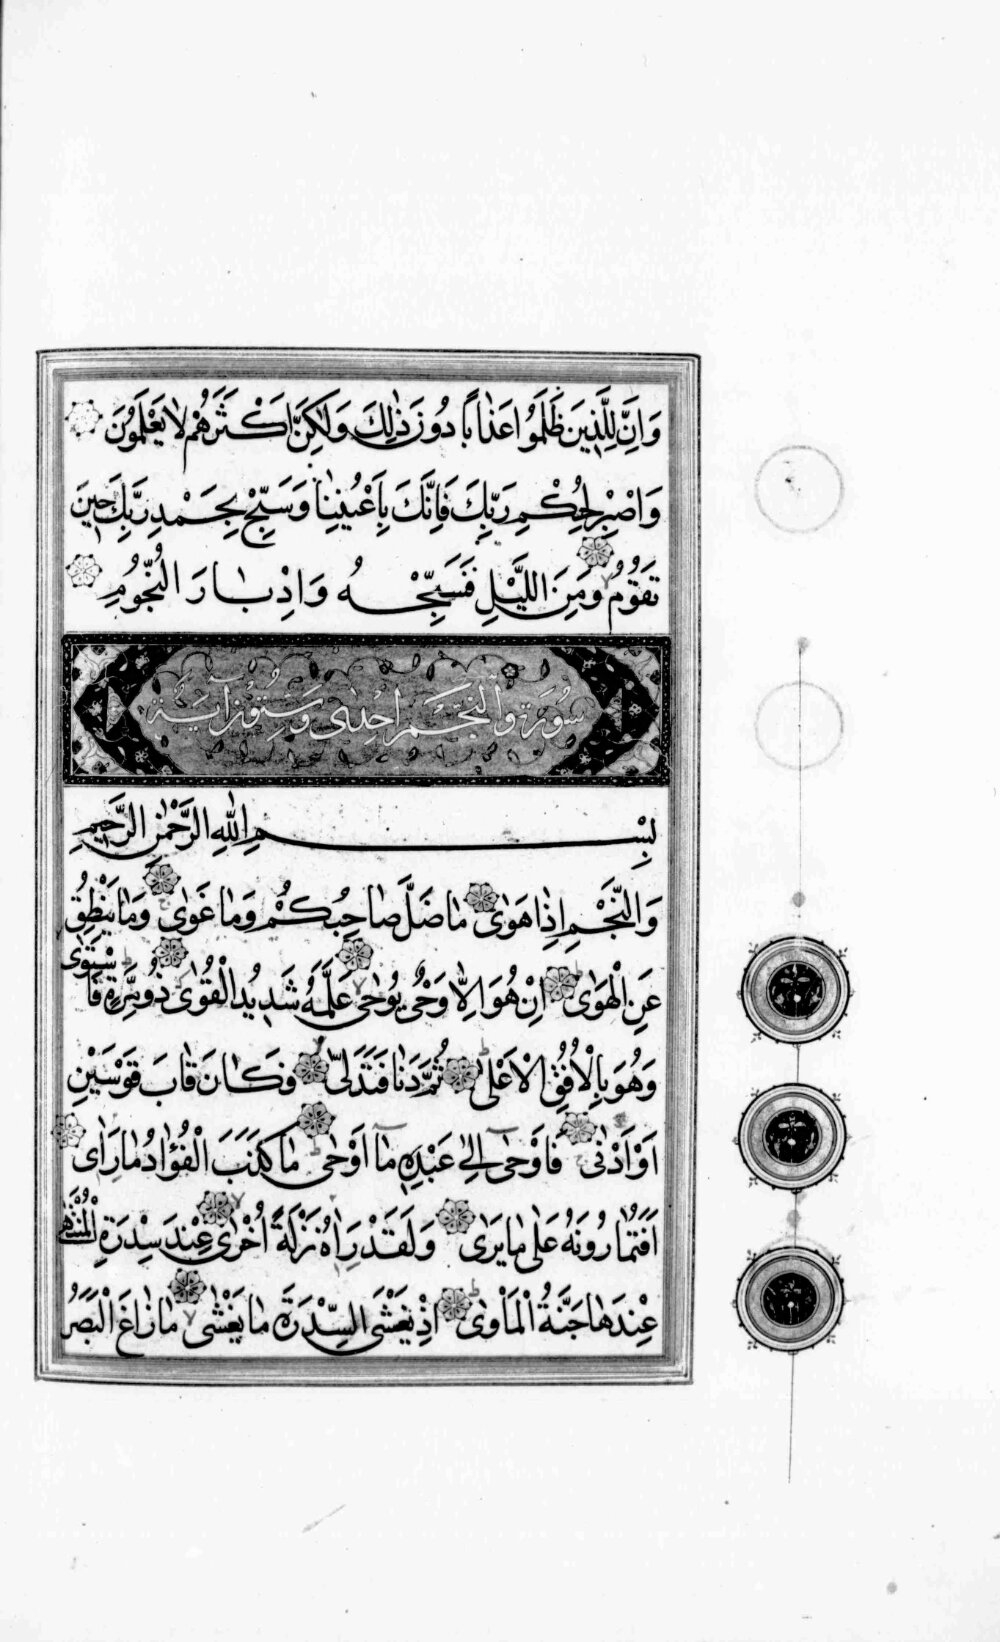 وَاِنَّ لِلَّذِينَ ظَلَمُوا عَذَابًا دُونَ ذٰلِكَ وَلٰكِنَّ اَكْثَرَهُمْ لَا يَعْلَمُونَ
وَاصْبِرْ لِحُكْمِ رَبِّكَ فَاِنَّكَ بِاَعْيُنِنَا وَسَبِّحْ بِحَمْدِ رَبِّكَ حِينَ
تَقُومُ وَمِنَ اللَّيْلِ فَسَبِّحْهُ وَاِدْبَارَ النُّجُومِ
سُورَة وَالنَّجْمِ اِحْدٰى وَسِتُّونَ اٰيَة
بِسْمِ اللّٰهِ الرَّحْمٰنِ الرَّحِيمِ
وَالنَّجْمِ اِذَا هَوٰى مَا ضَلَّ صَاحِبُكُمْ وَمَا غَوٰى وَمَا يَنْطِقُ
عَنِ الْهَوٰى اِنْ هُوَ اِلَّا وَحْيٌ يُوحٰى عَلَّمَهُ شَدِيدُ الْقُوٰى ذُو مِرَّةٍ فَاسْتَوٰى
وَهُوَ بِالْاُفُقِ الْاَعْلٰى ثُمَّ دَنَا فَتَدَلّٰى فَكَانَ قَابَ قَوْسَيْنِ
اَوْ اَدْنٰى فَاَوْحٰى اِلٰى عَبْدِهِ مَا اَوْحٰى مَا كَذَبَ الْفُؤَادُ مَا رَاٰى
اَفَتُمَارُونَهُ عَلٰى مَا يَرٰى وَلَقَدْ رَاٰهُ نَزْلَةً اُخْرٰى عِنْدَ سِدْرَةِ الْمُنْتَهٰى
عِنْدَهَا جَنَّةُ الْمَاْوٰى اِذْ يَغْشَى السِّدْرَةَ مَا يَغْشٰى مَا زَاغَ الْبَصَرُ